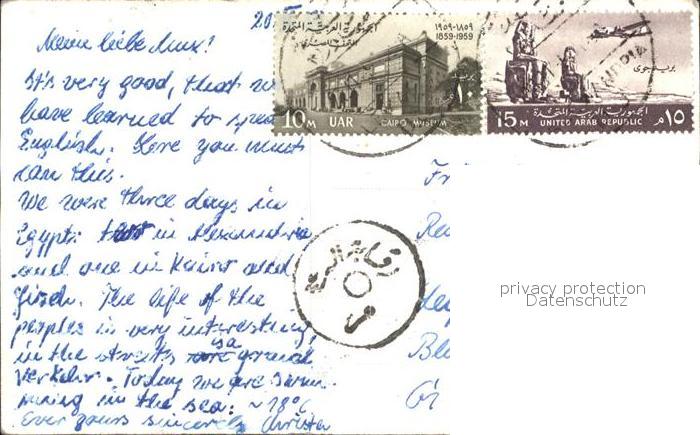 20.
Meine liebe Mux!
It's very good, that we
have learned to speak
English. Here you must
can this.
We were three days in
Egypt: in Alexandria
and one in Kairo and
Giseh. The life of the
peoples is very interesting,
in the streets is a general
Verkehr. Today we are swim-
ming in the sea: ~18°C
Ever yours sincerely Christa
الجمهورية العربية المتحدة
١٨٥٩-١٩٥٩
1859-1959
10 M UAR CAIRO MUSEUM
الجمهورية العربية المتحدة
15 M UNITED ARAB REPUBLIC ١٥ م
Fr
Le
Bl
privacy protection
Datenschutz